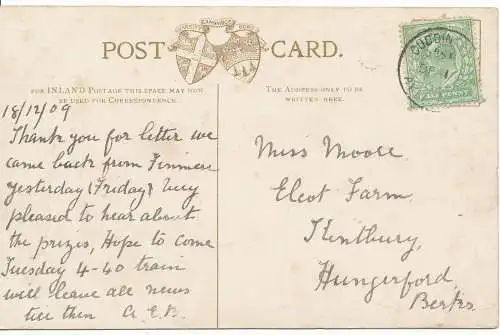 POST CARD.
CAMBRIDGE
FOR INLAND POSTAGE THIS SPACE MAY NOW
BE USED FOR CORRESPONDENCE.
THE ADDRESS ONLY TO BE
WRITTEN HERE.
18/12/09
Thank you for letter we
came back from Finmere
yesterday (Friday) Very
pleased to hear about
the prizes, Hope to come
Tuesday 4-40 train
will leave all news
till then A.E.B.
Miss Moore
Elcot Farm
Kintbury,
Hungerford,
Berks
HALF PENNY